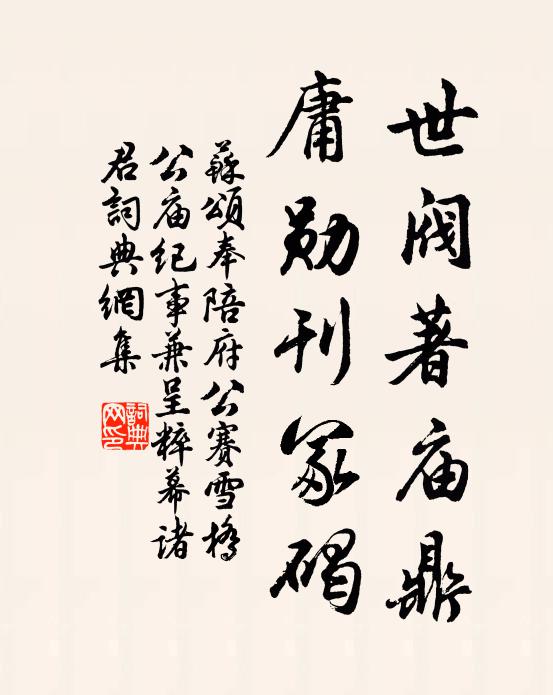 世阀著庙鼎
庸勋刊冢碣
蘇頌奉陪府公賽雪橋
公庙纪事兼呈粹幕诸
君詞典網集
詞典
网印